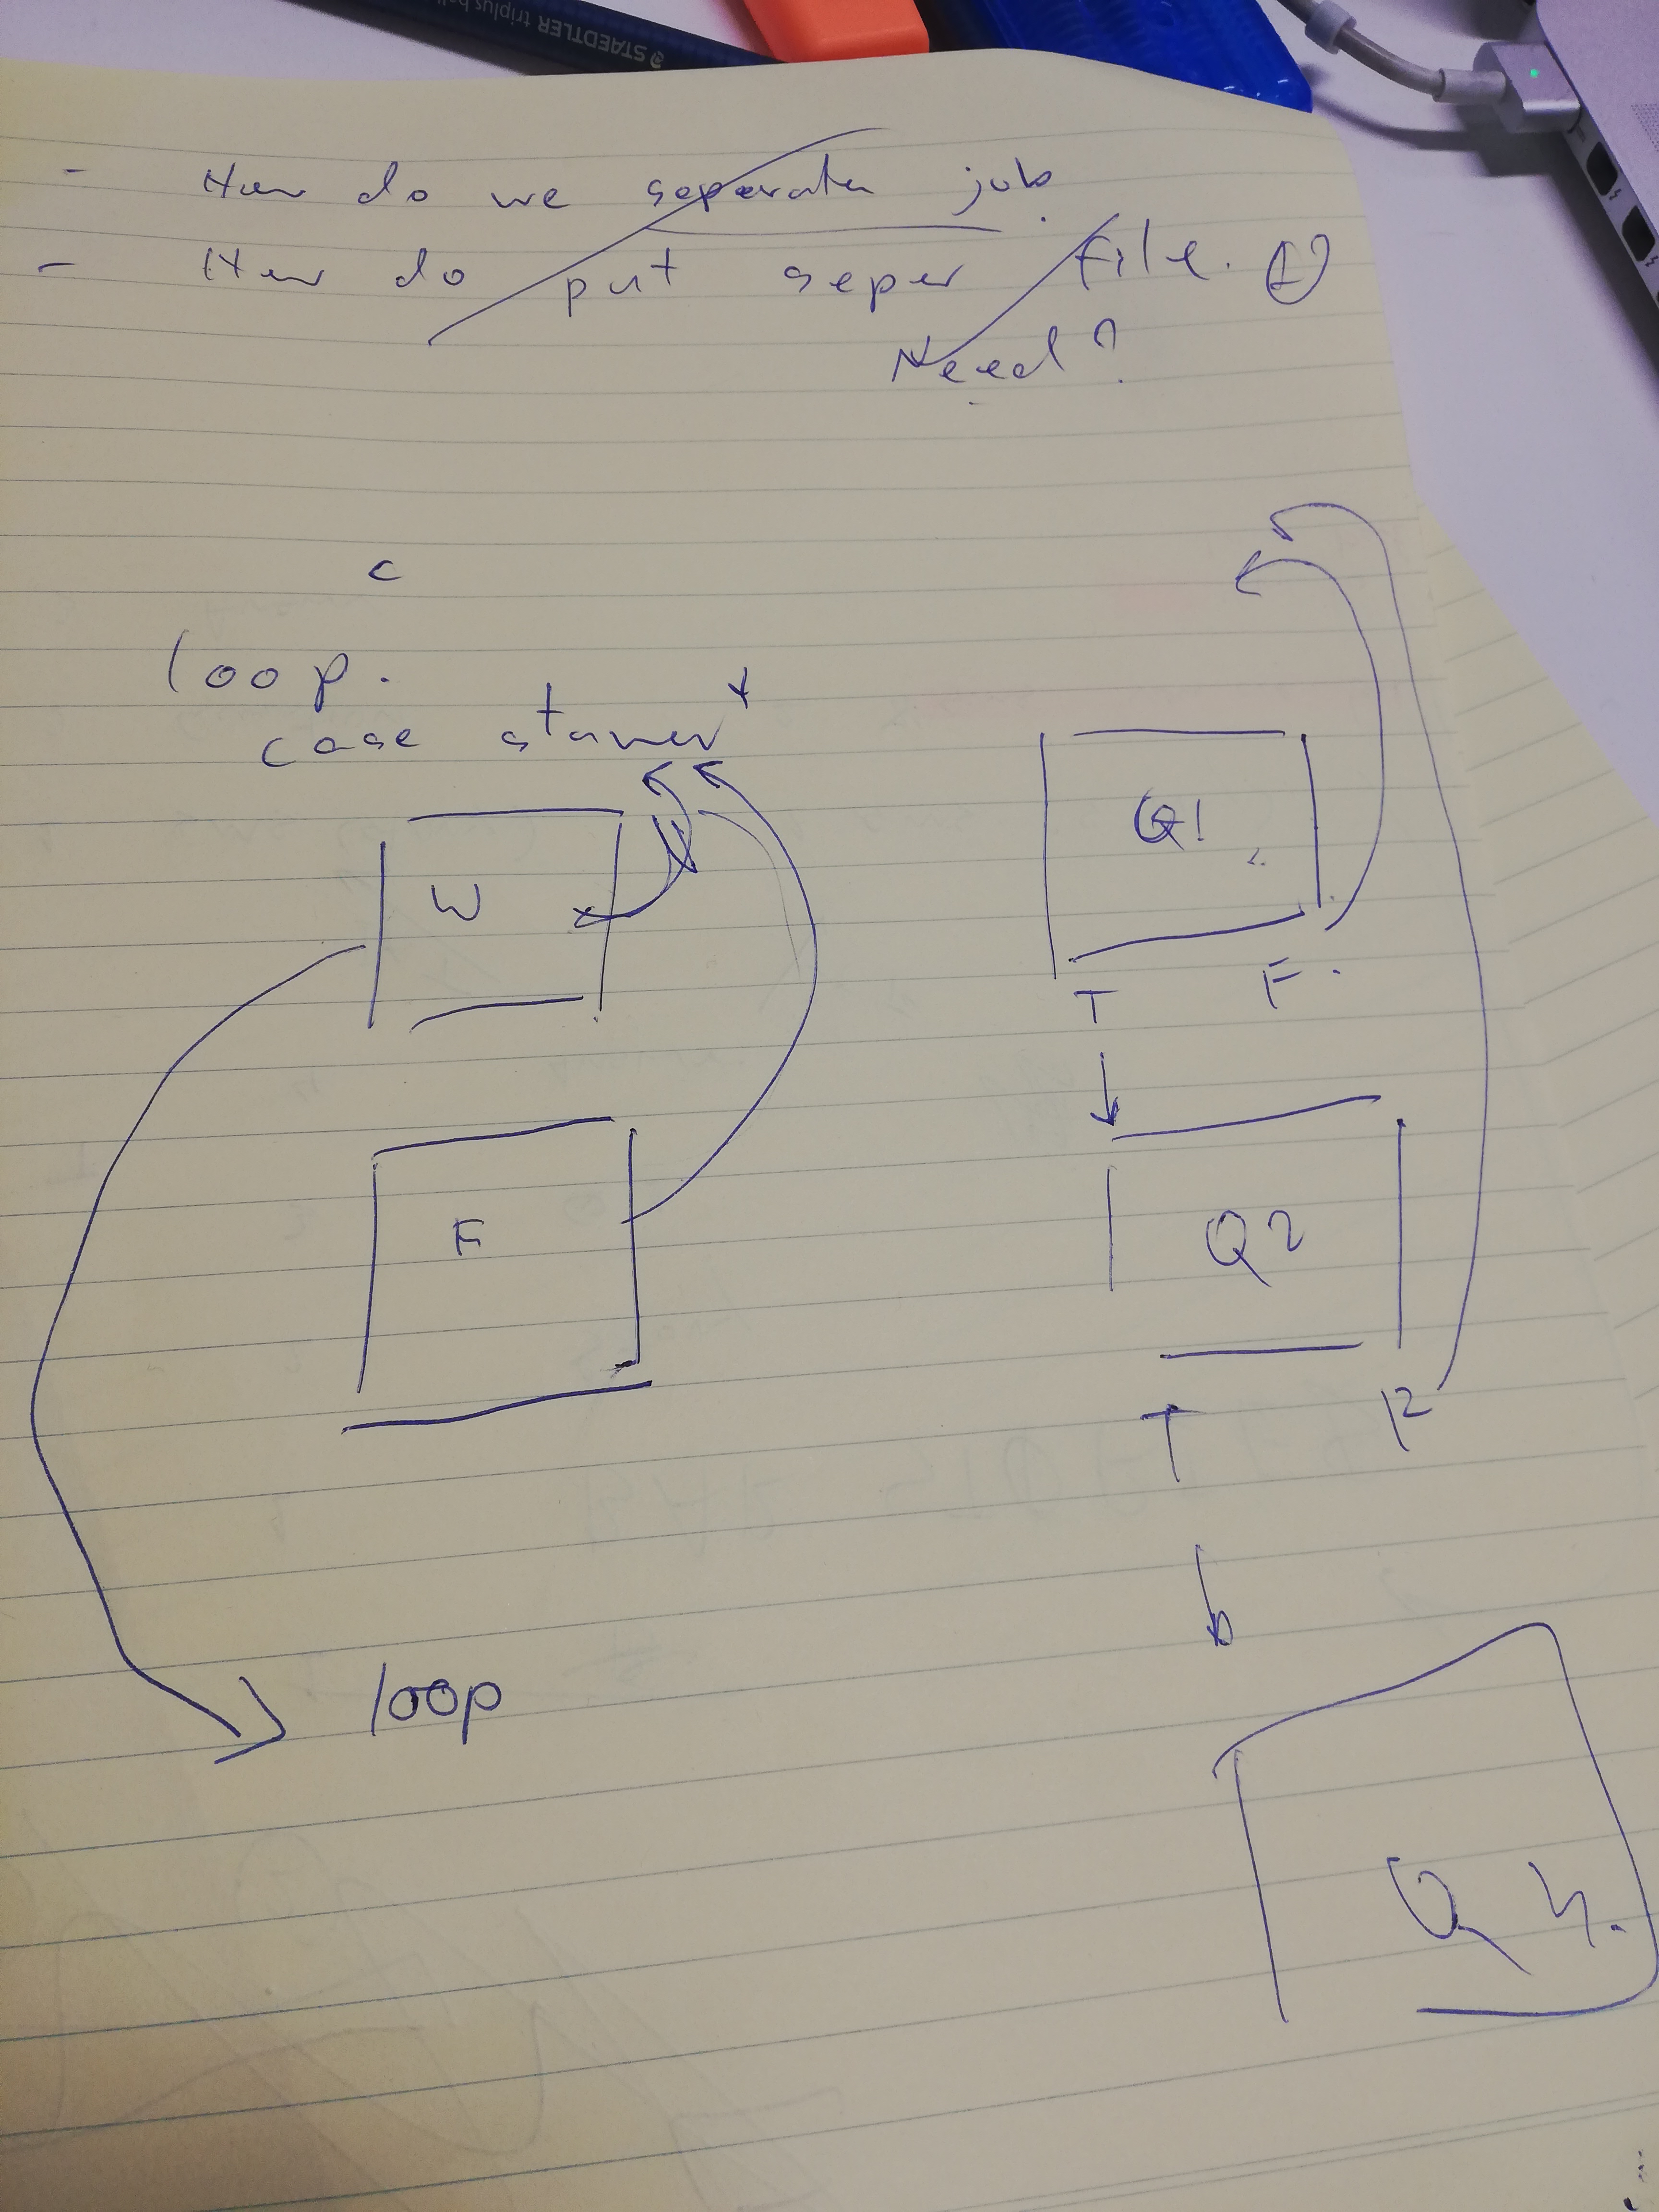 STAEDTLER triplus ball
- How do we separate job
- How do put seper file.
Need?
c
loop.
case
W
F
loop
Q1
T F.
Q2
T F
Q